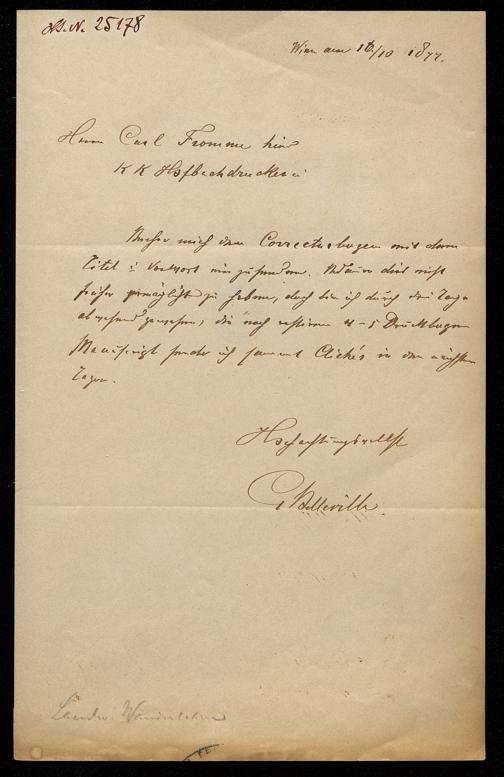 H.I.N. 25178
Wien am 16/10 1877.
Herrn Carl Fromme hier
K K Hofbuchdruckerei
mich den Correcturbogen mit dem
Titel & Vorwort einzusenden. dies nicht
früher zu haben, doch bin ich durch drei Tage
abwesend gewesen, die noch restirenden 4-5 Druckbogen
Manuscript sende ich sammt Clichés in den nächsten
Tagen.
Hochachtungsvollst
Belleville